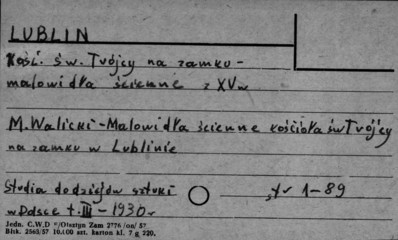 LUBLIN
Kość. św. Trójcy na zamku -
malowidła ścienne z XV w
M. Walicki - Malowidła ścienne kościoła św Trójcy
na zamku w Lublinie
Studia do dziejów sztuki
w Polsce t. III - 1930 r
str 1-89
Jedn. C.W.D Olsztyn Zam 2776/on/57
Blsk. 2563/57 10.000 szt. karton kl. 7 g 220.